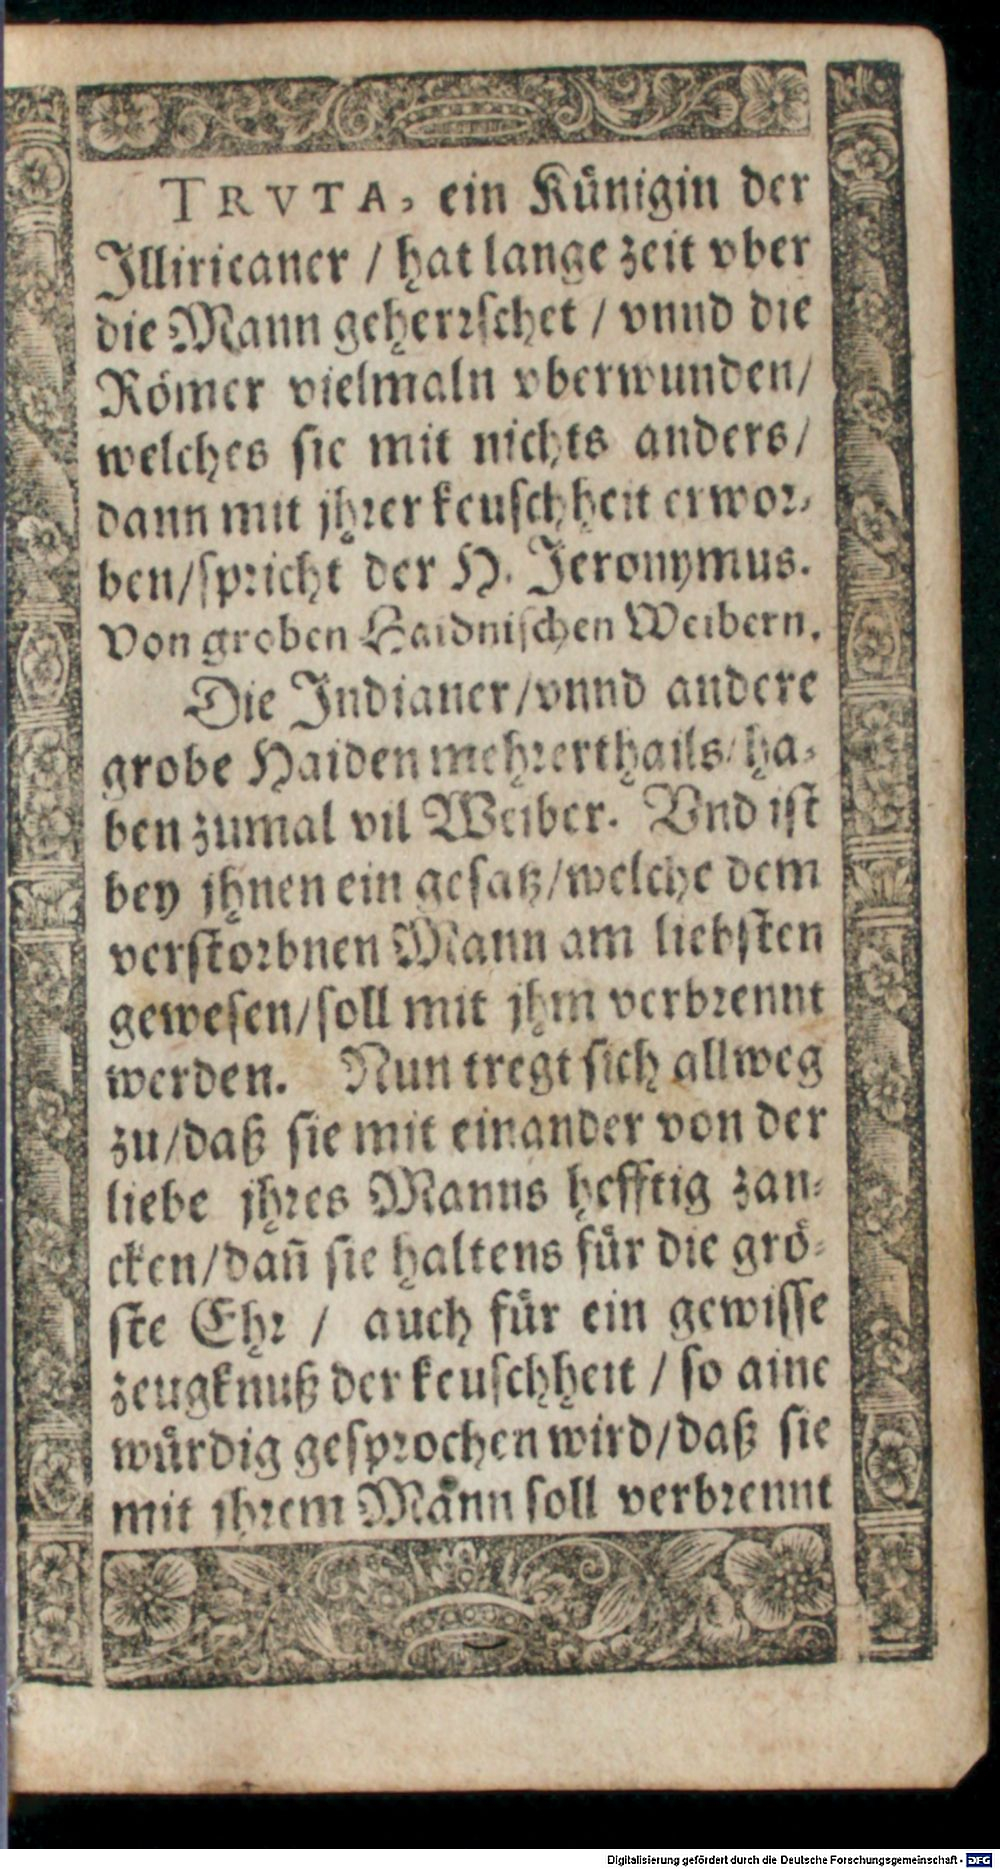 TRVTA, ein Künigin der
Illiricaner / hat lange zeit vber
die Mann geherrschet / vnnd die
Römer vielmaln vberwunden/
welches sie mit nichts anders/
dann mit jhrer keuschheit erwor-
ben/spricht der H. Jeronymus.
Von groben Haidnischen Weibern.
Die Indianer/vnnd andere
grobe Haiden mehrerthails/ha-
ben zumal vil Weiber. Vnd ist
bey jhnen ein gesatz/welche dem
verstorbnen Mann am liebsten
gewesen/soll mit jhm verbrennt
werden. Nun tregt sich allweg
zu/daß sie mit einander von der
liebe jhres Manns hefftig zan-
cken/dañ sie haltens für die grö-
ste Ehr / auch für ein gewisse
zeugknuß der keuschheit / so aine
würdig gesprochen wird/daß sie
mit ihrem Mann soll verbrennt
Digitalisierung gefördert durch die Deutsche Forschungsgemeinschaft - DFG